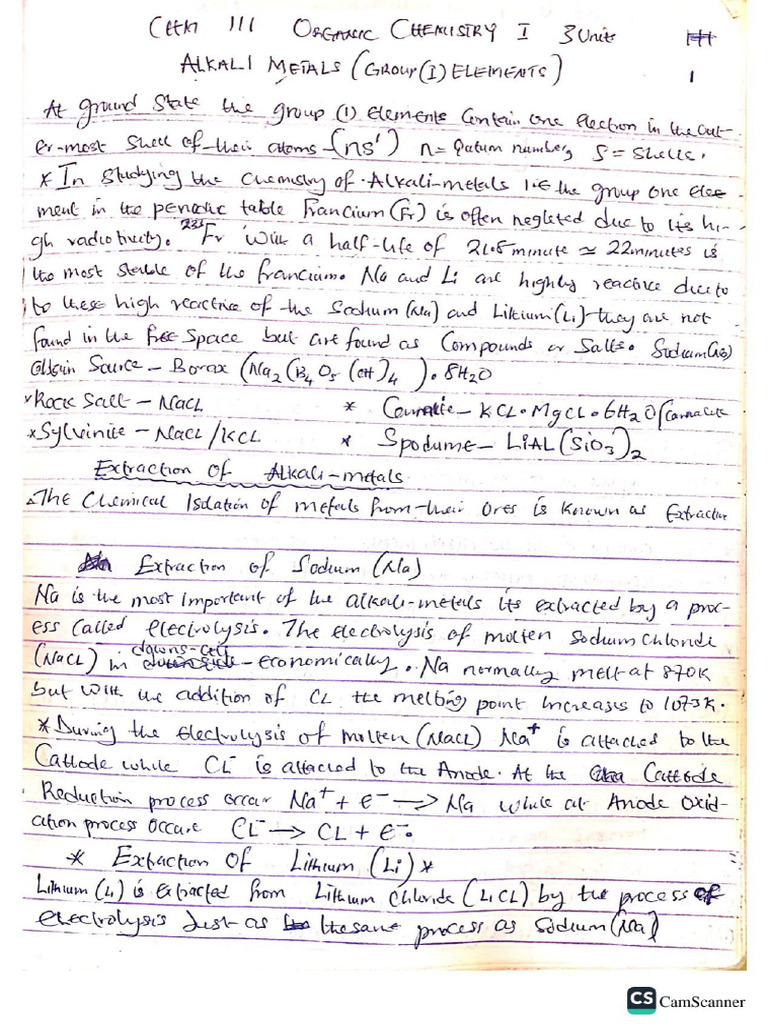 CHM 111 ORGANIC CHEMISTRY I 3 Units
ALKALI METALS (GROUP (I) ELEMENTS)
1
At ground State the group (1) Elements Contain one electron in the out-
er-most Shell of their atoms - (ns¹) n = Quatum number, S = Shells.
* In Studying the Chemistry of Alkali-metals I.E the group one ele-
ment in the periodic table Francium (Fr) is often negleted due to its hi-
gh radiotivity. Fr with a half-life of 21.8 minute ≃ 22 minutes is
the most stable of the francium. Na and Li are highly reactive due to
to these high reactive of the Sodium (Na) and Lithium (Li) they are not
found in the free Space but are found as Compounds or Salts. Sodium (Na)
Obtain Source - Borax (Na₂(B₄O₅(OH)₄). 8H₂O
* Rock Salt - NaCL * KCL. MgCL. 6H₂O
* Sylvinite - NaCL/KCL * Spodume - LiAL(SiO₃)₂
Extraction of Alkali-metals
The Chemical Isolation of metals from their Ores is known as Extraction
Extraction of Sodium (Na)
Na is the most important of the alkali-metals its extracted by a proc-
ess Called electrolysis. The electrolysis of molten Sodium Chloride
(NaCL) in downs-cell - economically. Na normally melt at 870K
but with the addition of CL the melting point increases to 1073K.
* During the Electrolysis of molten (NaCL) Na⁺ is attached to the
Cathode while CL⁻ is attached to the Anode. At the Cathode
Reduction process occur Na⁺ + e⁻ → Na while at Anode Oxid-
ation process Occure CL⁻ → CL + e⁻.
* Extraction Of Lithium (Li) *
Lithium (Li) is Extracted from Lithium Chloride (LiCL) by the process of
electrolysis Just as the same process as Sodium (Na)
CS CamScanner